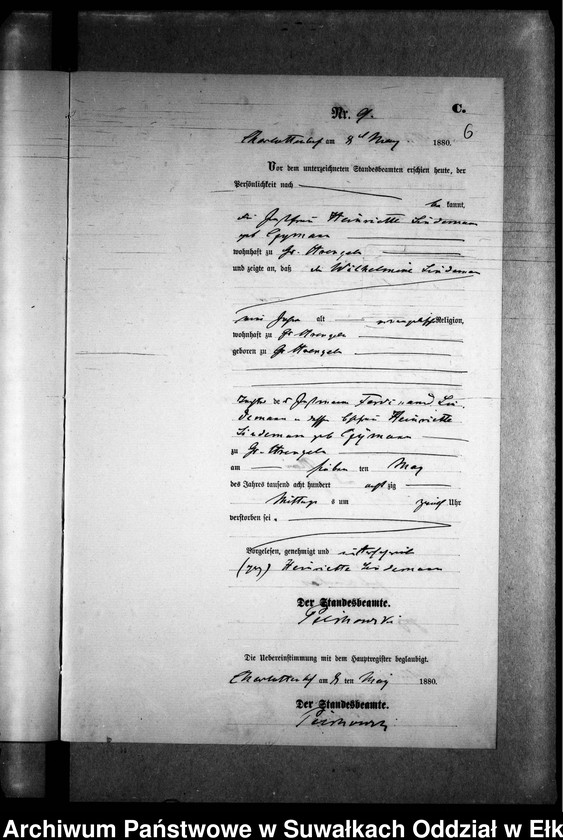 C.
Nr. 9.
6
Charlottenhof am 8t May 1880.
Vor dem unterzeichneten Standesbeamten erschien heute, der
Persönlichkeit nach
be kannt,
die Instfrau Heinriette Lindemann
geb
wohnhaft zu Gr.
und zeigte an, daß die Wilhelmine Lindemann
Jahre alt evangelischer Religion,
wohnhaft zu Gr
geboren zu Gr
Tochter des Instmann Ferdinand Lin
demann u dessen Ehefrau Heinriette
Lindemann geb
zu Gr.
am sieben ten May
des Jahres tausend acht hundert acht zig
Mittags s um zwölf Uhr
verstorben sei.
Vorgelesen, genehmigt und unterschrieben
(gez) Heinriette Lindemann
Der Standesbeamte.
Die Uebereinstimmung mit dem Hauptregister beglaubigt.
Charlottenhof am 8 ten May 1880.
Der Standesbeamte.
Archiwum Państwowe w Suwałkach Oddział w Ełk